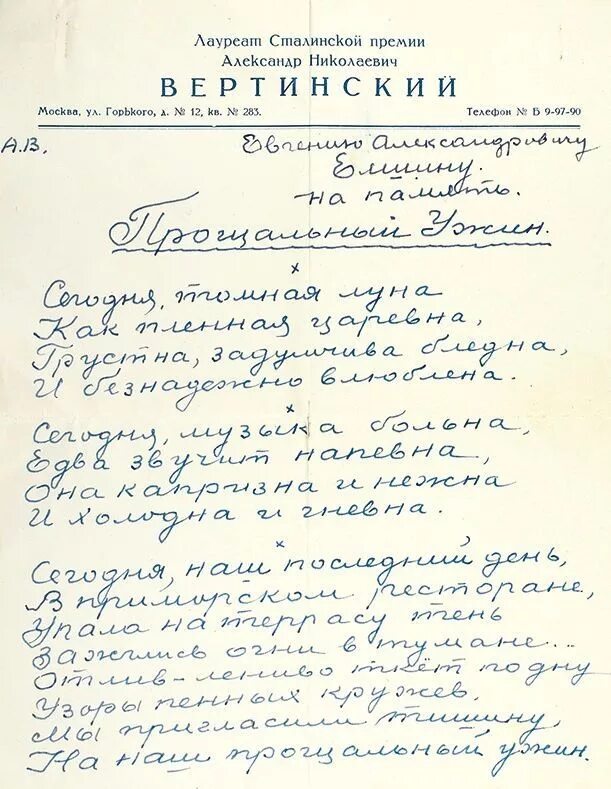 Лауреат Сталинской премии
Александр Николаевич
ВЕРТИНСКИЙ
Москва, ул. Горького, д. № 12, кв. № 283. Телефон № Б 9-97-90
А.В. Евгению Александровичу
Елшину.
на память.
Прощальный Ужин.
х
Сегодня, томная луна
Как пленная царевна,
Грустна, задумчива бледна,
И безнадежно влюблена.
х
Сегодня, музыка больна,
Едва звучит напевна,
Она капризна и нежна
И холодна и гневна.
х
Сегодня, наш последний день,
В приморском ресторане,
Упала на террасу тень
Зажглись огни в тумане...
Отлив-лениво ткёт по дну
Узоры пенных кружев.
Мы пригласили тишину,
На наш прощальный ужин.